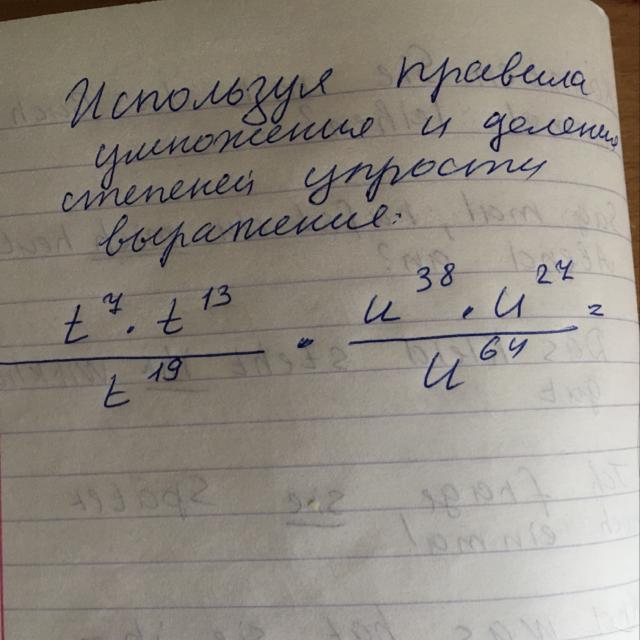 Используя правила
умножение и деления
степеней упрости
выражение.
t⁷ · t¹³ / t¹⁹ · u³⁸ · u²⁷ / u⁶⁴ =